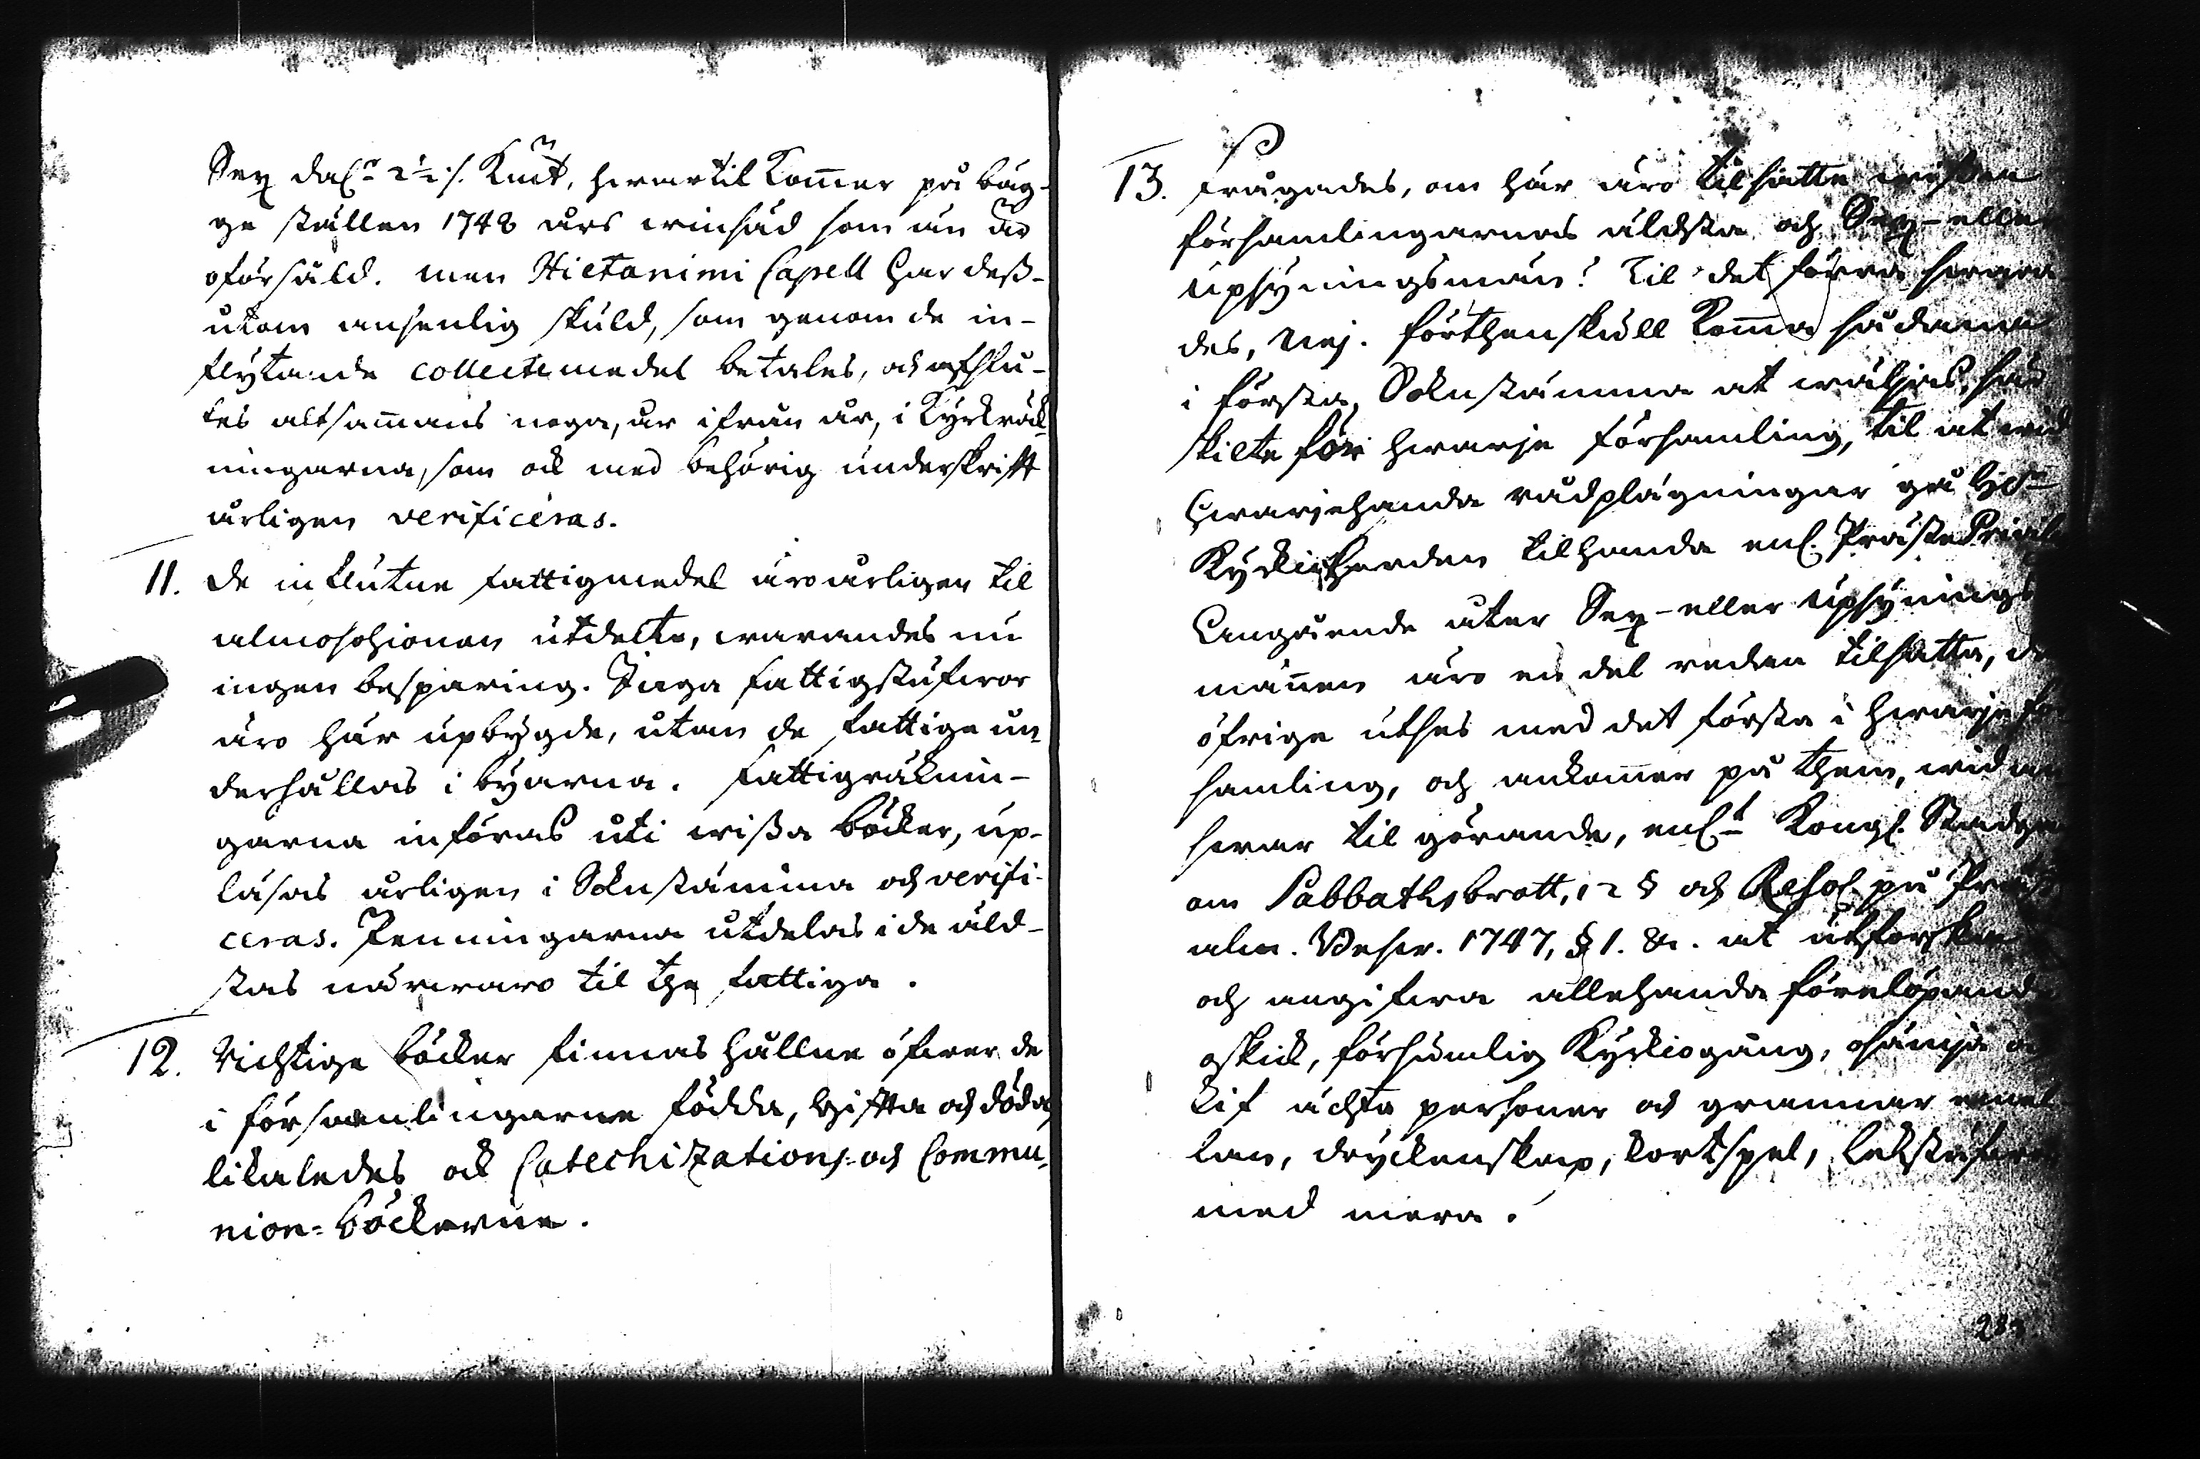 Sex dal:r 2½ :/. Kmt, hwartil kommer på bäg-
ge ställen 1748 års winsäd som än är
oförsåld. men Hietanimi Capell har dess-
utom ansenlig skuld, som genom de in-
flytande collectemedel betales, och afslu-
tes altsammans noga, år ifrån år, i Kyrkräk-
ningarna, som ock med behörig underskrifft
årligen verificeras.
11. De influtne fattigmedel äro årligen til
almosohionen utdelte, warandes nu
ingen besparing. Inga fattigstufwor
äro här upbygde, utan de fattige un-
derhållas i byarna. Fattigräknin-
garna införas uti wissa böcker, up-
läsas årligen i Soknstämma och verifi-
ceras. Penningarna utdelas i de äld-
stas närwaro til the fattiga.
12. Richtige böcker finnas hållne öfwer de
i församlingarne födda, wigta och döda,
likaledes ock Catechizations- och Commu-
nion-böckerne.
13. Frågades, om här äro tilsatte wissa
församlingarnas äldsta och Sex- eller
upsyningsmän? Til det förra swara-
des, Nej. förthenskull komma sådana
i första Soknstämma at wäljas, sär-
skilte för hwarje församling, til at wid
hwarjehanda rådplägningar gå H:r
Kyrkioherden tilhanda enl. Präste Privil.
Angående åter Sex- eller upsynings-
männen äro en del redan tilsatta, de
öfrige utses med det första i hwarje för-
samling, och ankommer på them, wid an-
swar til görande, enl:t Kongl. Stadgan
om Sabbathsbrott, 12 § och Resol. på Präst.
alm. Beswr. 1747, § 1. &. at utforska
och angifwa allehanda förelöpande
oskick, försumlig Kyrkiogång, osämja och
kif ächta personer och grannar emel-
lan, dryckenskap, kortspel, lekstufwor
med mera.